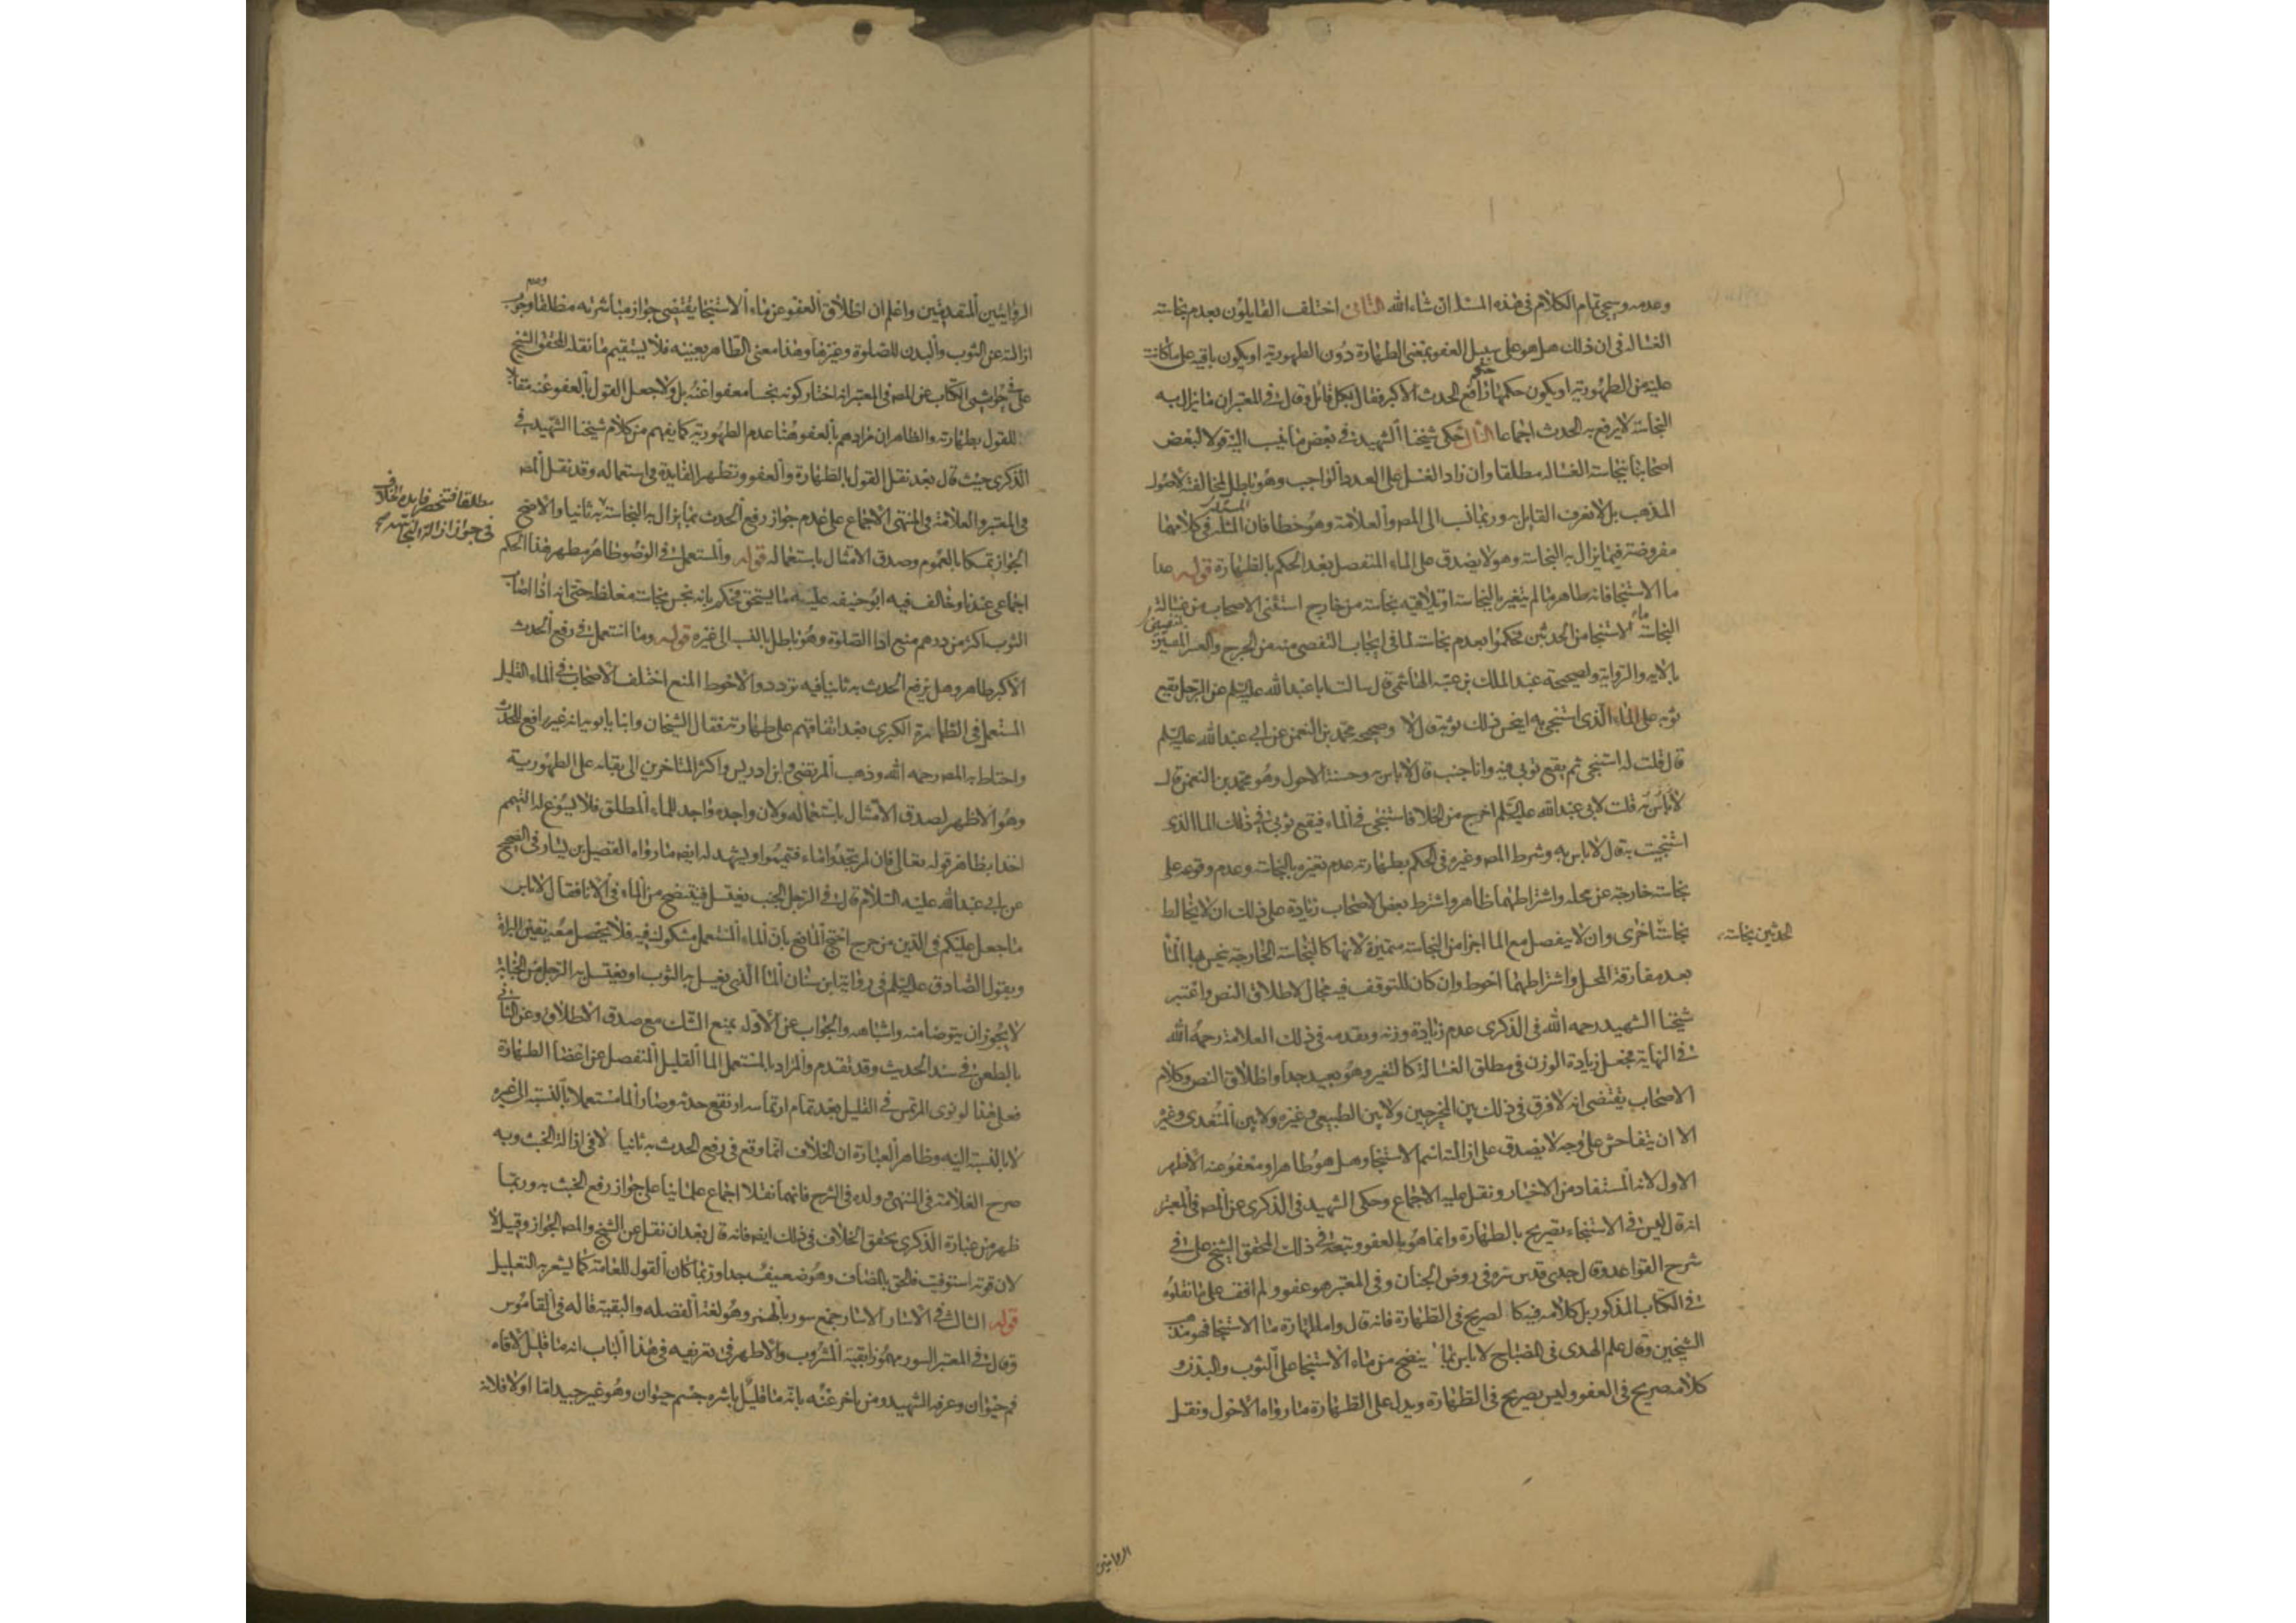 وعدمه وسيجي تمام الكلام في هذه المسئله ان شاء الله الثاني اختلف القايلون بعدم نجاسته
الغساله في ان ذلك هل هو على سبيل العفو بمعنى الطهارة دون الطهورية او يكون باقيه على ما كانت
عليه من الطهورية او يكون حكمها حكم رافع الحدث الاكبر فقال بكل قائل وقال في المعتبر ان ما يزال به
النجاسة لا يرفع به الحدث اجماعا الثالث حكى شيخنا الشهيد في بعض ما ينسب اليه قولا لبعض
اصحابنا بنجاسة الغساله مطلقا وان زاد الغسل على العدد الواجب وهو باطل لمخالفته لاصول
المذهب بل لا نعرف القايل به وربما نسب الى المصـ والعلامة وهو خطا فان المسئلة في كلامهما
مفروضة فيما يزال به النجاسة وهو لا يصدق على الماء المنفصل بعد الحكم بالطهارة قوله عدا
ما الاستنجا فانه طاهر ما لم يتغير بالنجاسة او تلاقيه نجاسة من خارج استثنى الاصحاب من غسالة
النجاسة ماء الاستنجا من الحدثين فحكموا بعدم نجاسته لما في ايجاب التفصي منه من الحرج والعسر المنفيين
بالايه والرواية ولصحيحة عبد الملك بن عتبه الهاشمي قال سالت ابا عبد الله عليه السلم عن الرجل يقع
ثوبه على الماء الذي استنجى به اينجس ذلك ثوبه قال لا وصحيحه محمد بن النعمن عن ابي عبد الله عليه السلم
قال قلت له استنجي ثم يقع ثوبي فيه وانا جنب قال لا باس به وحسنة الاحول وهو محمد بن النعمن قال
لا باس به قلت لابي عبد الله عليه السلم اخرج من الخلا فاستنجي في الماء فيقع ثوبي في ذلك الما الذي
استنجيت به قال لا باس به وشرط المصـ وغيره في الحكم بطهارته عدم تغيره بالنجاسة وعدم وقوعه على
نجاسة خارجة عن محله واشتراطهما ظاهر واشترط بعض الاصحاب زيادة على ذلك ان لا يخالط
نجاسة اخرى وان لا ينفصل مع الما اجزا من النجاسة متميزة لانها كالنجاسة الخارجة ينجس بها الما
الحدثين نجاسة
بعد مفارقة المحل واشتراطهما احوط وان كان للتوقف فيه مجال لاطلاق النص واعتبر
شيخنا الشهيد رحمه الله في الذكرى عدم زيادة وزنه وتقدمه في ذلك العلامة رحمه الله
في النهاية فجعل زيادة الوزن في مطلق الغسالة كالتغير وهو بعيد جدا واطلاق النص وكلام
الاصحاب يقتضي انه لا فرق في ذلك بين المخرجين ولا بين الطبيعي وغيره ولا بين المتعدي وغيره
الا ان يتفاحش على وجه لا يصدق على ازالته اسم الاستنجا وهل هو طاهر او معفو عنه الاظهر
الاول لانه المستفاد من الاخبار ونقل عليه الاجماع وحكى الشهيد في الذكرى عن المصـ في المعتبر
انه قال ليس في الاستنجاء تصريح بالطهارة وانما هو بالعفو وتبعه في ذلك المحقق الشيخ علي في
شرح القواعد وقال جدي قدس سره في روض الجنان وفي المعتبر هو عفو ولم اقف على ما نقلوه
في الكتاب المذكور بل كلامه فيه كالصريح في الطهارة فانه قال واما طهارة ما الاستنجا فهو مذهب
الشيخين وقال علم الهدى في المصباح لا باس بما ينضح من ماء الاستنجا على الثوب والبدن و
كلامه صريح في العفو وليس بصريح في الطهارة ويدل على الطهارة ما رواه الاحول ونقل
الروايتين
الروايتين المتقدمتين واعلم ان اطلاق العفو عن ماء الاستنجا يقتضي جواز مباشرته مطلقا وعدم وجوب
ازالته عن الثوب والبدن للصلوة وغيرها وهذا معنى الطاهر بعينه فلا يستقيم ما نقله المحقق الشيخ
علي في حواشي الكتاب عن المصـ في المعتبر انه اختار كونه نجسا معفوا عنه بل ولا جعل القول بالعفو عنه مقابلا
للقول بطهارته والظاهر ان مرادهم بالعفو هنا عدم الطهورية كما يفهم من كلام شيخنا الشهيد في
الذكرى حيث قال بعد نقل القول بالطهارة والعفو وتظهر الفايدة في استعماله وقد نقل المصـ
في المعتبر والعلامة في المنتهى الاجماع على عدم جواز رفع الحدث بما يزال به النجاسة به ثانيا والاصح
مطلقا فتنحصر فايدة الخلاف
في جواز ازالة النجاسة به صح
الجواز تمسكا بالعموم وصدق الامتثال باستعماله قوله والمستعمل في الوضو طاهر مطهر هذا الحكم
اجماعي عندنا وخالف فيه ابو حنيفه عليه ما يستحق فحكم بانه نجس نجاسة مغلظة حتى انه اذا اصاب
الثوب اكثر من درهم منع اداء الصلوة وهو باطل بالنسبة الى غيره قوله وما استعمل في رفع الحدث
الاكبر طاهر وهل يرفع الحدث به ثانيا فيه تردد والاحوط المنع اختلف الاصحاب في الماء القليل
المستعمل في الطهارة الكبرى بعد اتفاقهم على طهارته فقال الشيخان وابنا بابويه انه غير رافع للحدث
واحتاط به المصـ رحمه الله وذهب المرتضى وابن ادريس واكثر المتاخرين الى بقائه على الطهورية
وهو الاظهر لصدق الامتثال باستعماله ولان واجده واجد للماء المطلق فلا يسوغ له التيمم
اخذا بظاهر قوله تعالى فان لم تجدوا ماء فتيمموا ويشهد له ايضـ ما رواه الفضيل بن يسار في الصحيح
عن ابي عبد الله عليه السلام قال في الرجل الجنب يغتسل فينتضح من الماء في الانا فقال لا باس
ما جعل عليكم في الدين من حرج احتج المانع بان الماء المستعمل مشكوك فيه فلا يحصل معه يقين البراة
وبقول الصادق عليه السلم في رواية ابن سنان الما الذي يغسل به الثوب او يغتسل به الرجل من الجنابة
لا يجوز ان يتوضا منه واشباهه والجواب عن الاول بمنع الشك مع صدق الاطلاق وعن الثاني
بالطعن في سند الحديث وقد تقدم والمراد بالمستعمل الما القليل المنفصل عن اعضا الطهارة
فعلى هذا لو نوى المرتمس في القليل بعد تمام ارتماسه ارتفع حدثه وصار الما مستعملا بالنسبة الى غيره
لا بالنسبة اليه وظاهر العبارة ان الخلاف انما وقع في رفع الحدث به ثانيا لا في ازالة الخبث وبه
صرح العلامة في المنتهى وولده في الشرح فانهما نقلا اجماع علمائنا على جواز رفع الخبث به وربما
ظهر من عبارة الذكرى تحقق الخلاف في ذلك ايضـ فانه قال بعد ان نقل عن الشيخ والمصـ الجواز وقيل لا
لان قوته استوفيت فالحق بالمضاف وهو ضعيف جدا وربما كان القول للعامة كما يشعر به التعليل
قوله الثالث في الاسآر الاسار جمع سور بالهمز وهو لغة الفضله والبقية قاله في القاموس
وقال في المعتبر السور مهموزا بقية المشروب والاظهر في تعريفه في هذا الباب انه ما قليل لاقاه
فم حيوان وعرفه الشهيد ومن تاخر عنه بانه ما قليل باشره جسم حيوان وهو غير جيد اما اولا فلانه